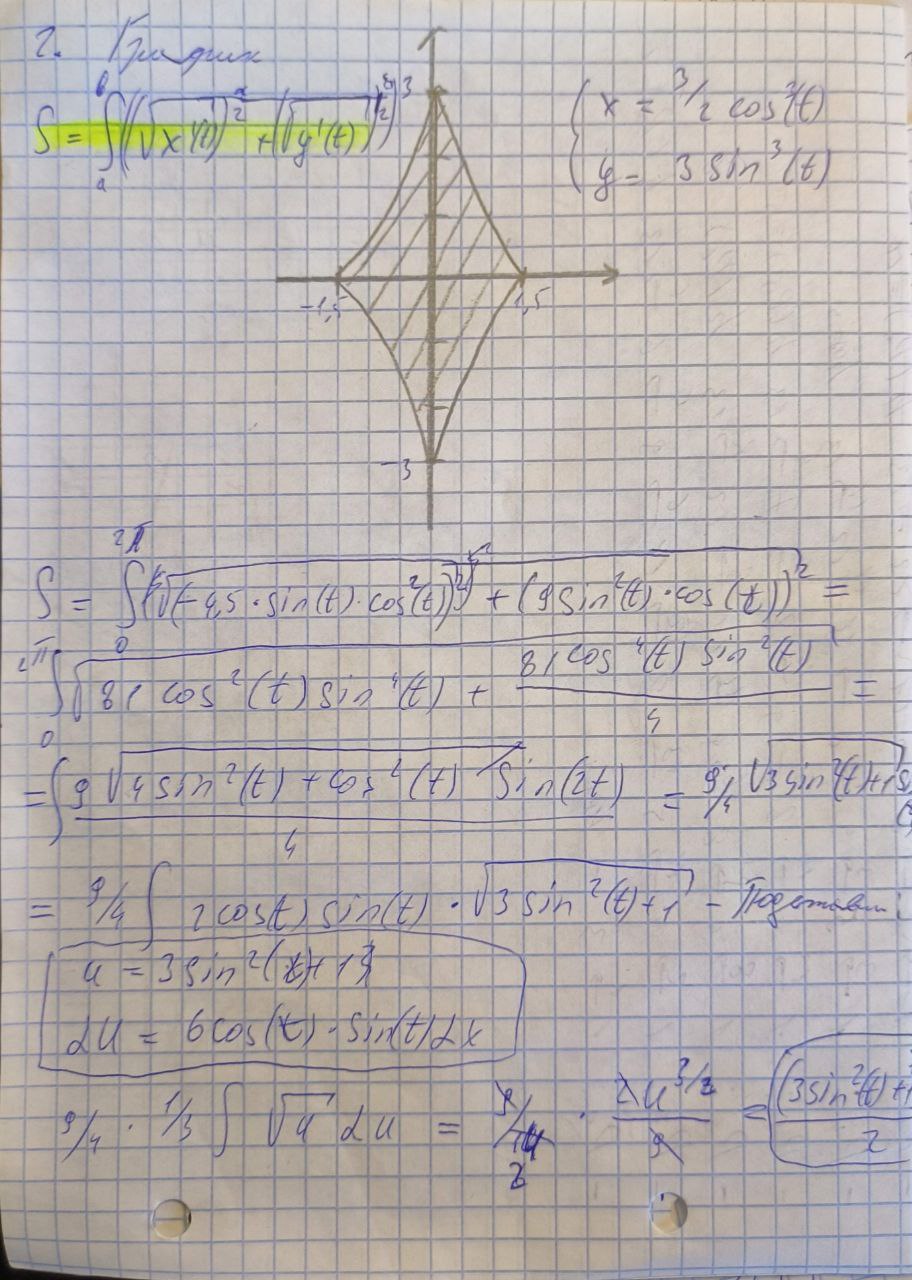 2. График
S = ∫ₐᵇ ((√x'(t))² + (√y'(t))²)
3
{ x = 3/2 cos³(t)
{ y = 3 sin³(t)
-1,5
1,5
-3
S = ∫₀²π √(-4,5 · sin(t) · cos²(t))² + (9 sin²(t) · cos(t))² =
∫₀²π √(81 cos²(t) sin⁴(t) + 81 cos⁴(t) sin²(t) / 4) =
= ∫ 9 √(4 sin²(t) + cos²(t)) sin(2t) / 4 = 9/4 √(3 sin²(t) + 1
= 9/4 ∫ 2 cos(t) sin(t) · √(3 sin²(t) + 1) - Подставим:
u = 3 sin²(t) + 1
du = 6 cos(t) · sin(t) dx
9/4 · 1/3 ∫ √u du = 9/4 2 · 2u^3/2 / 9 = (3 sin²(t) + 1 / 2